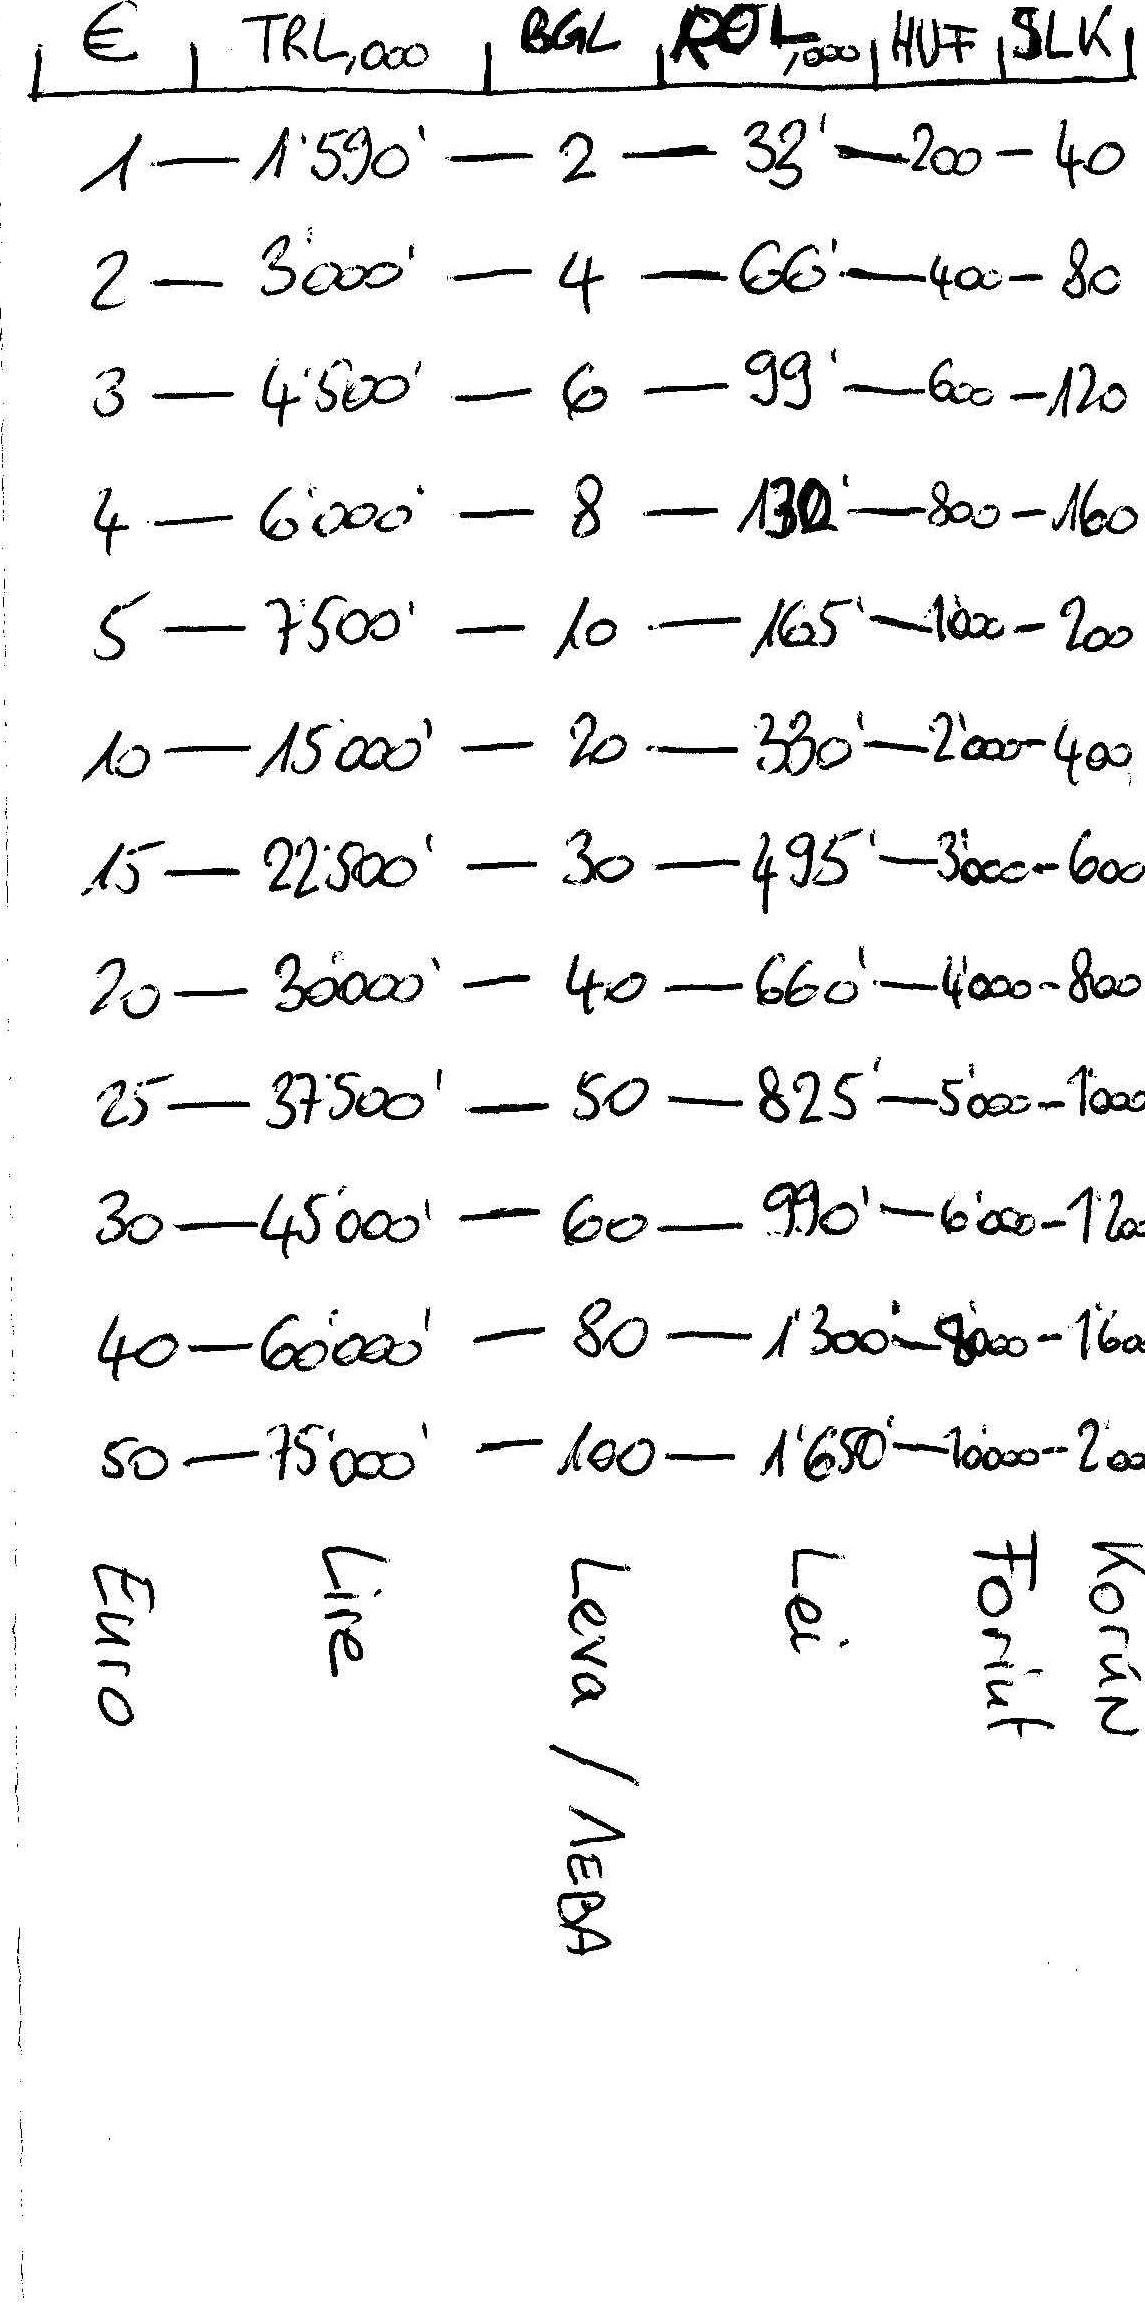 € | TRL,000 | BGL | ROL,000 | HUF | SLK
1 — 1'590' — 2 — 33' — 200 — 40
2 — 3'000' — 4 — 66' — 400 — 80
3 — 4'500' — 6 — 99' — 600 — 120
4 — 6'000' — 8 — 130' — 800 — 160
5 — 7'500' — 10 — 165' — 1'000 — 200
10 — 15'000' — 20 — 330' — 2'000 — 400
15 — 22'500' — 30 — 495' — 3'000 — 600
20 — 30'000' — 40 — 660' — 4'000 — 800
25 — 37'500' — 50 — 825' — 5'000 — 1'000
30 — 45'000' — 60 — 990' — 6'000 — 1'200
40 — 60'000' — 80 — 1'300' — 8'000 — 1'600
50 — 75'000' — 100 — 1'650' — 10'000 — 2'00
Euro
Lire
Leva / ЛЕВА
Lei
Foriut
Korún